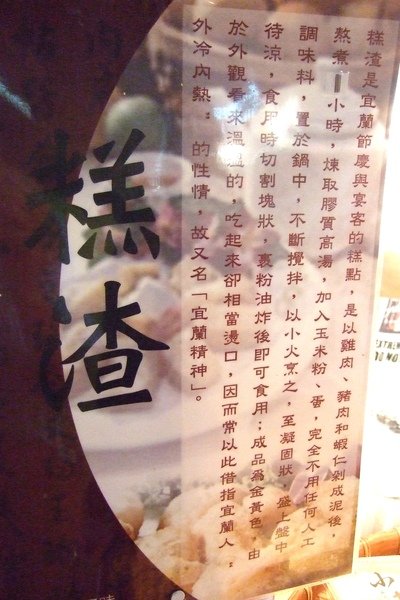 糕渣
糕渣是宜蘭節慶與宴客的糕點，是以雞肉、豬肉和蝦仁剁成泥後，
熬煮一小時，煉取膠質高湯，加入玉米粉、蛋，完全不用任何人工
調味料，置於鍋中，不斷攪拌，以小火烹之，至凝固狀，盛上盤中
待涼，食用時切割塊狀，裹粉油炸後即可食用；成品為金黃色，由
於外觀看來溫溫的，吃起來卻相當燙口，因而常以此借指宜蘭人：
外冷內熱：的性情，故又名「宜蘭精神」。